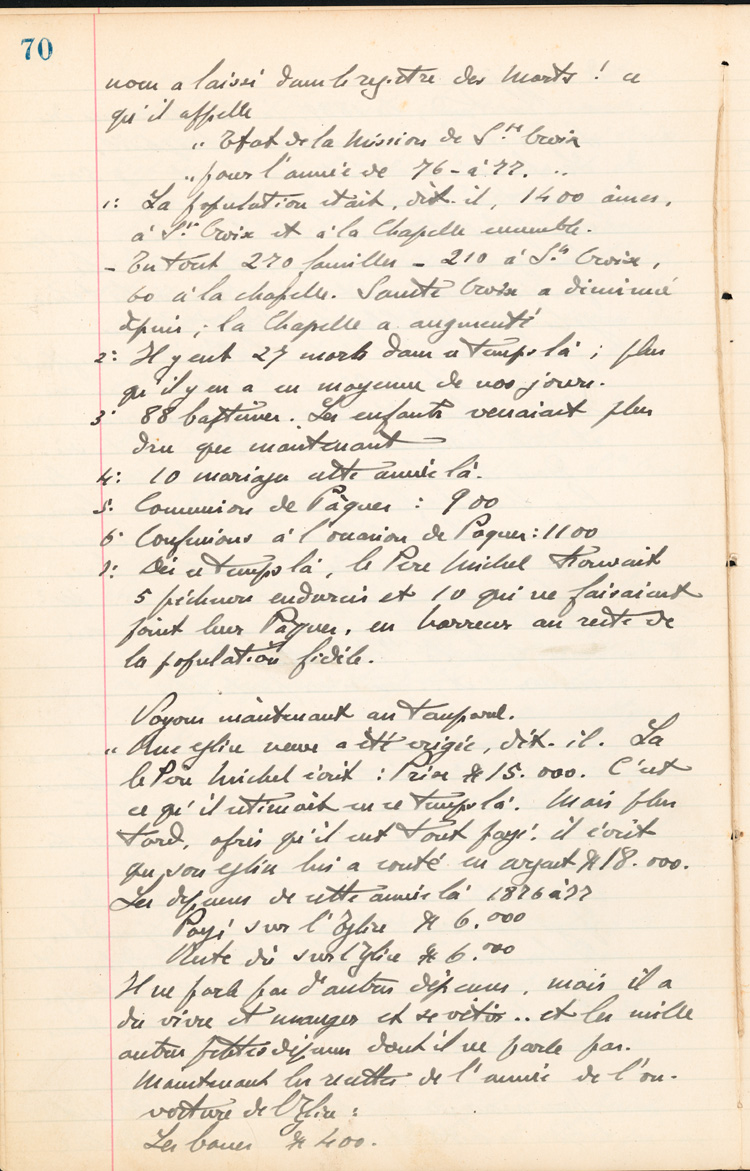 70
nous a laissé dans le registre des Morts ! ce
qu'il appelle
" Etat de la Mission de Ste Croix
" pour l'année de 76 - à 77. "
1: La population était, dit-il, 1400 âmes,
à Ste Croix et à la Chapelle ensemble.
- En tout 270 familles - 210 à Ste Croix,
60 à la chapelle. Sainte Croix a diminué
depuis ; la Chapelle a augmenté
2: Il y eut 27 morts dans ce temps là ; plus
qu'il y en a en moyenne de nos jours.
3: 88 baptêmes. Les enfants venaient plus
dru que maintenant
4: 10 mariages cette année là.
5: Communion de Pâques : 900
6: Confessions à l'occasion de Pâques : 1100
7: Dès ce temps là, le Père Michel trouvait
5 pécheurs endurcis et 10 qui ne faisaient
point leurs Pâques, en horreur au reste de
la population fidèle.
Voyons maintenant au temporel.
" Une eglise neuve a été erigée, dit-il. La
le Père Michel écrit : Prix $15.000. C'est
ce qu'il estimait en ce temps là. Mais plus
tard, après qu'il eut tout payé. il écrit
que son eglise lui a couté en argent $18.000.
Les dépenses de cette année là 1876 à 77
Payé sur l'Eglise $6.000
Reste dû sur l'Eglise $6.000
Il ne parle pas d'autres dépenses, mais il a
du vivre et manger et se vêtir.. et les mille
autres petites dépenses dont il ne parle pas.
Maintenant les recettes de l'année de l'ou-
verture de l'Eglise :
Les bancs $400.